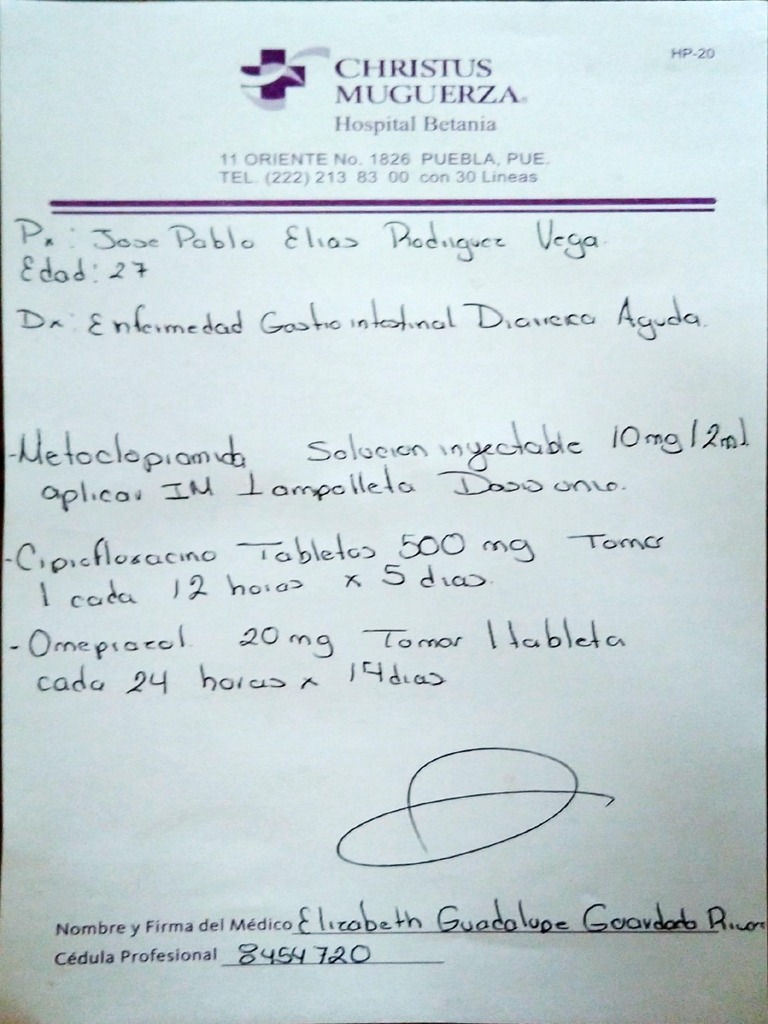 HP-20
CHRISTUS
MUGUERZA®
Hospital Betania
11 ORIENTE No. 1826 PUEBLA, PUE.
TEL. (222) 213 83 00 con 30 Lineas
Px: Jose Pablo Elias Rodriguez Vega.
Edad: 27
Dx: Enfermedad Gastrointestinal Diarreica Aguda.
-Metoclopramida Solucion inyectable 10mg/2ml
aplicar IM 1 ampolleta Dosis unica.
-Ciprofloxacino Tabletas 500 mg Tomar
1 cada 12 horas x 5 dias.
-Omeprazol. 20mg Tomar 1 tableta
cada 24 horas x 14 dias
Nombre y Firma del Médico Elizabeth Guadalupe Guardado
Cédula Profesional 8454720